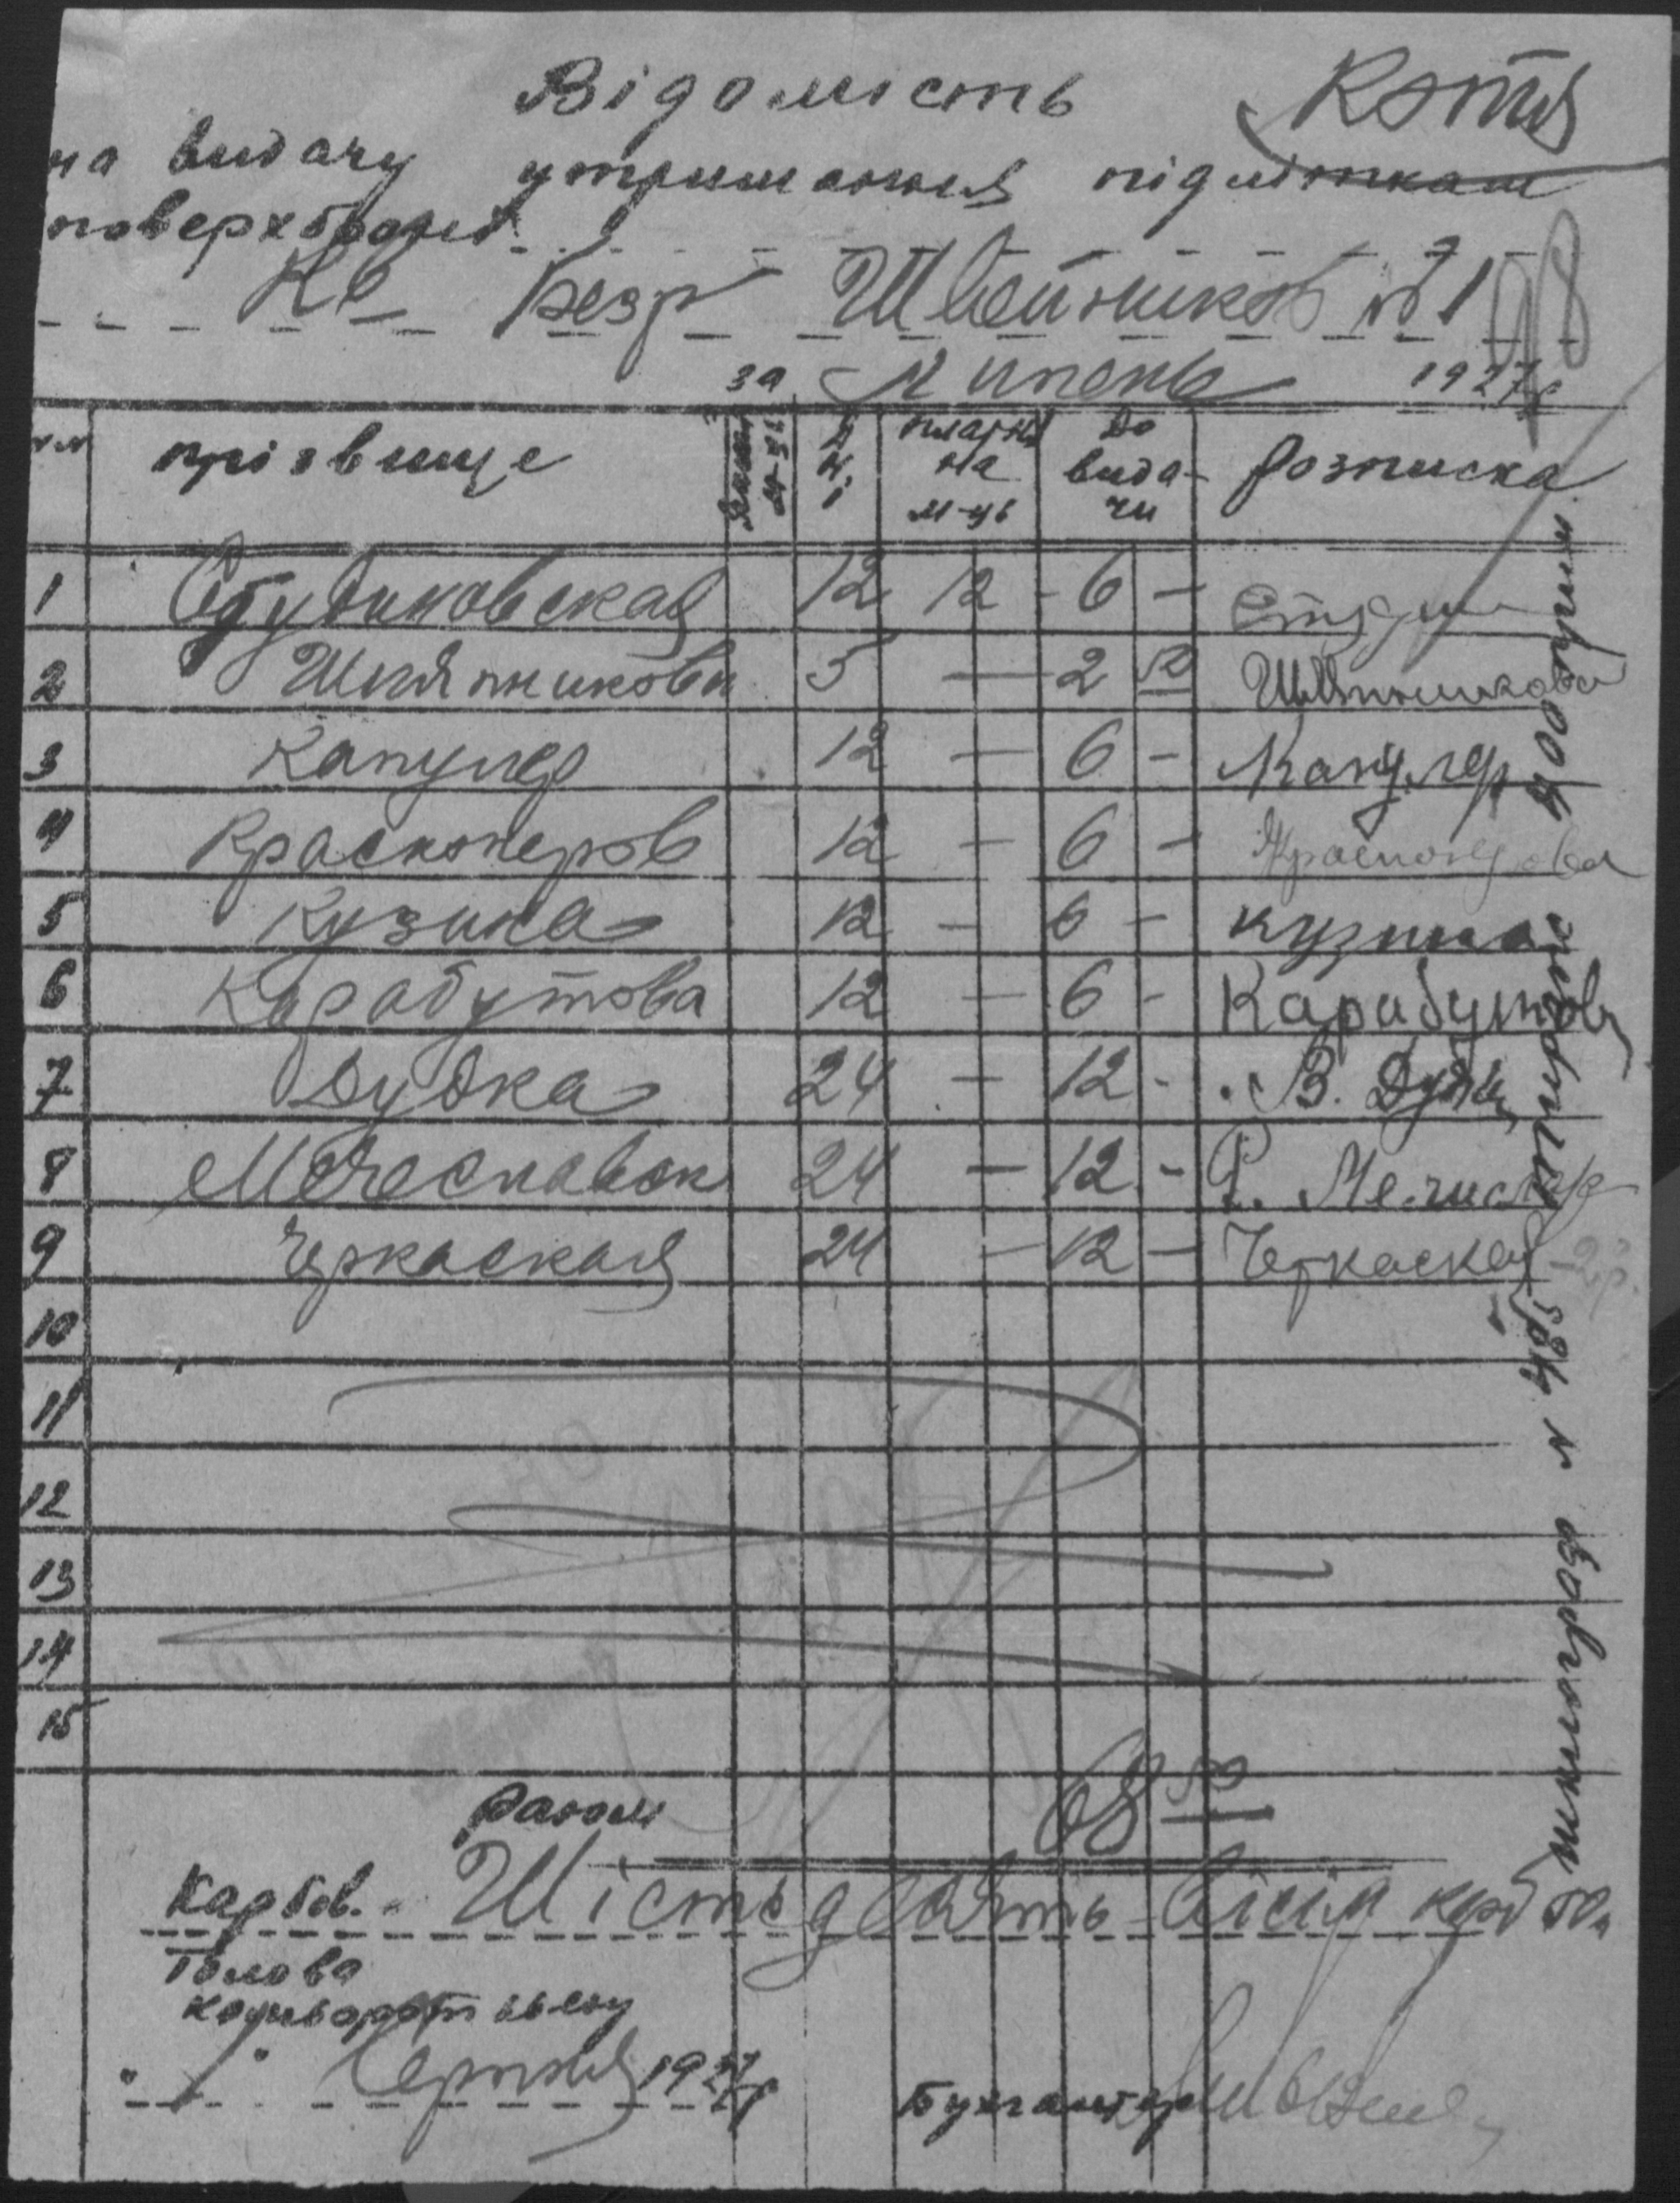 Відомість
Копія
на видачу утримання підліткам
поверхброні
Ко Безр Швейників №1
98
за Липень 1927р
№№ прізвище Дні платня на м-ць До вида-чи Розписка
1 Студиновская 12 12 - 6 -
2 Шляпникова 5 — 2 50 Шляпникова
3 Капуляр 12 — 6 - Капуляр
4 Красноперов 12 — 6 - Красноперова
5 Кузина 12 - 6 - кузина
6 Карабутова 12 — 6 - Карабутова
7 Дудка 24 - 12 - В. Дудка
8 24 — 12 -
9 Черкаская 24 - 12 - Черкаская
10
11
12
13
14
15
разом 68 50
Карбов. Шістьдесять вісім крб 50к
Голова
" " Серпня 1927р
Бухгалтер
400 прим.